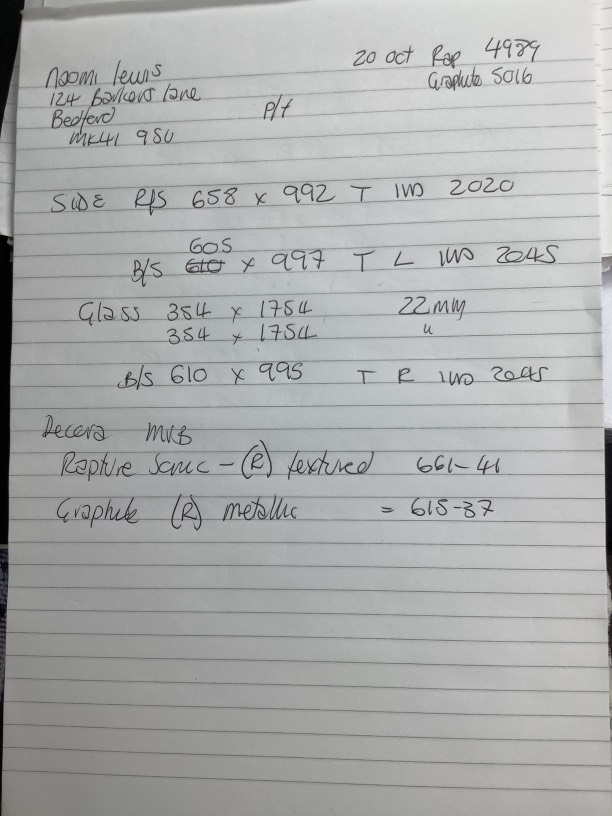 Naomi Lewis
124 Barkers Lane
Bedford
MK41 9SU
20 Oct Rap 4989
Graphite 5016
P/t
SIDE R/S 658 x 992 T IWD 2020
605
B/S 610 x 997 T L IWD 2045
Glass 354 x 1754 22mm
354 x 1754 "
B/S 610 x 995 T R IWD 2045
Decora MVB
Rapture Sonic - (R) textured 661-41
Graphite (R) metallic = 615-37